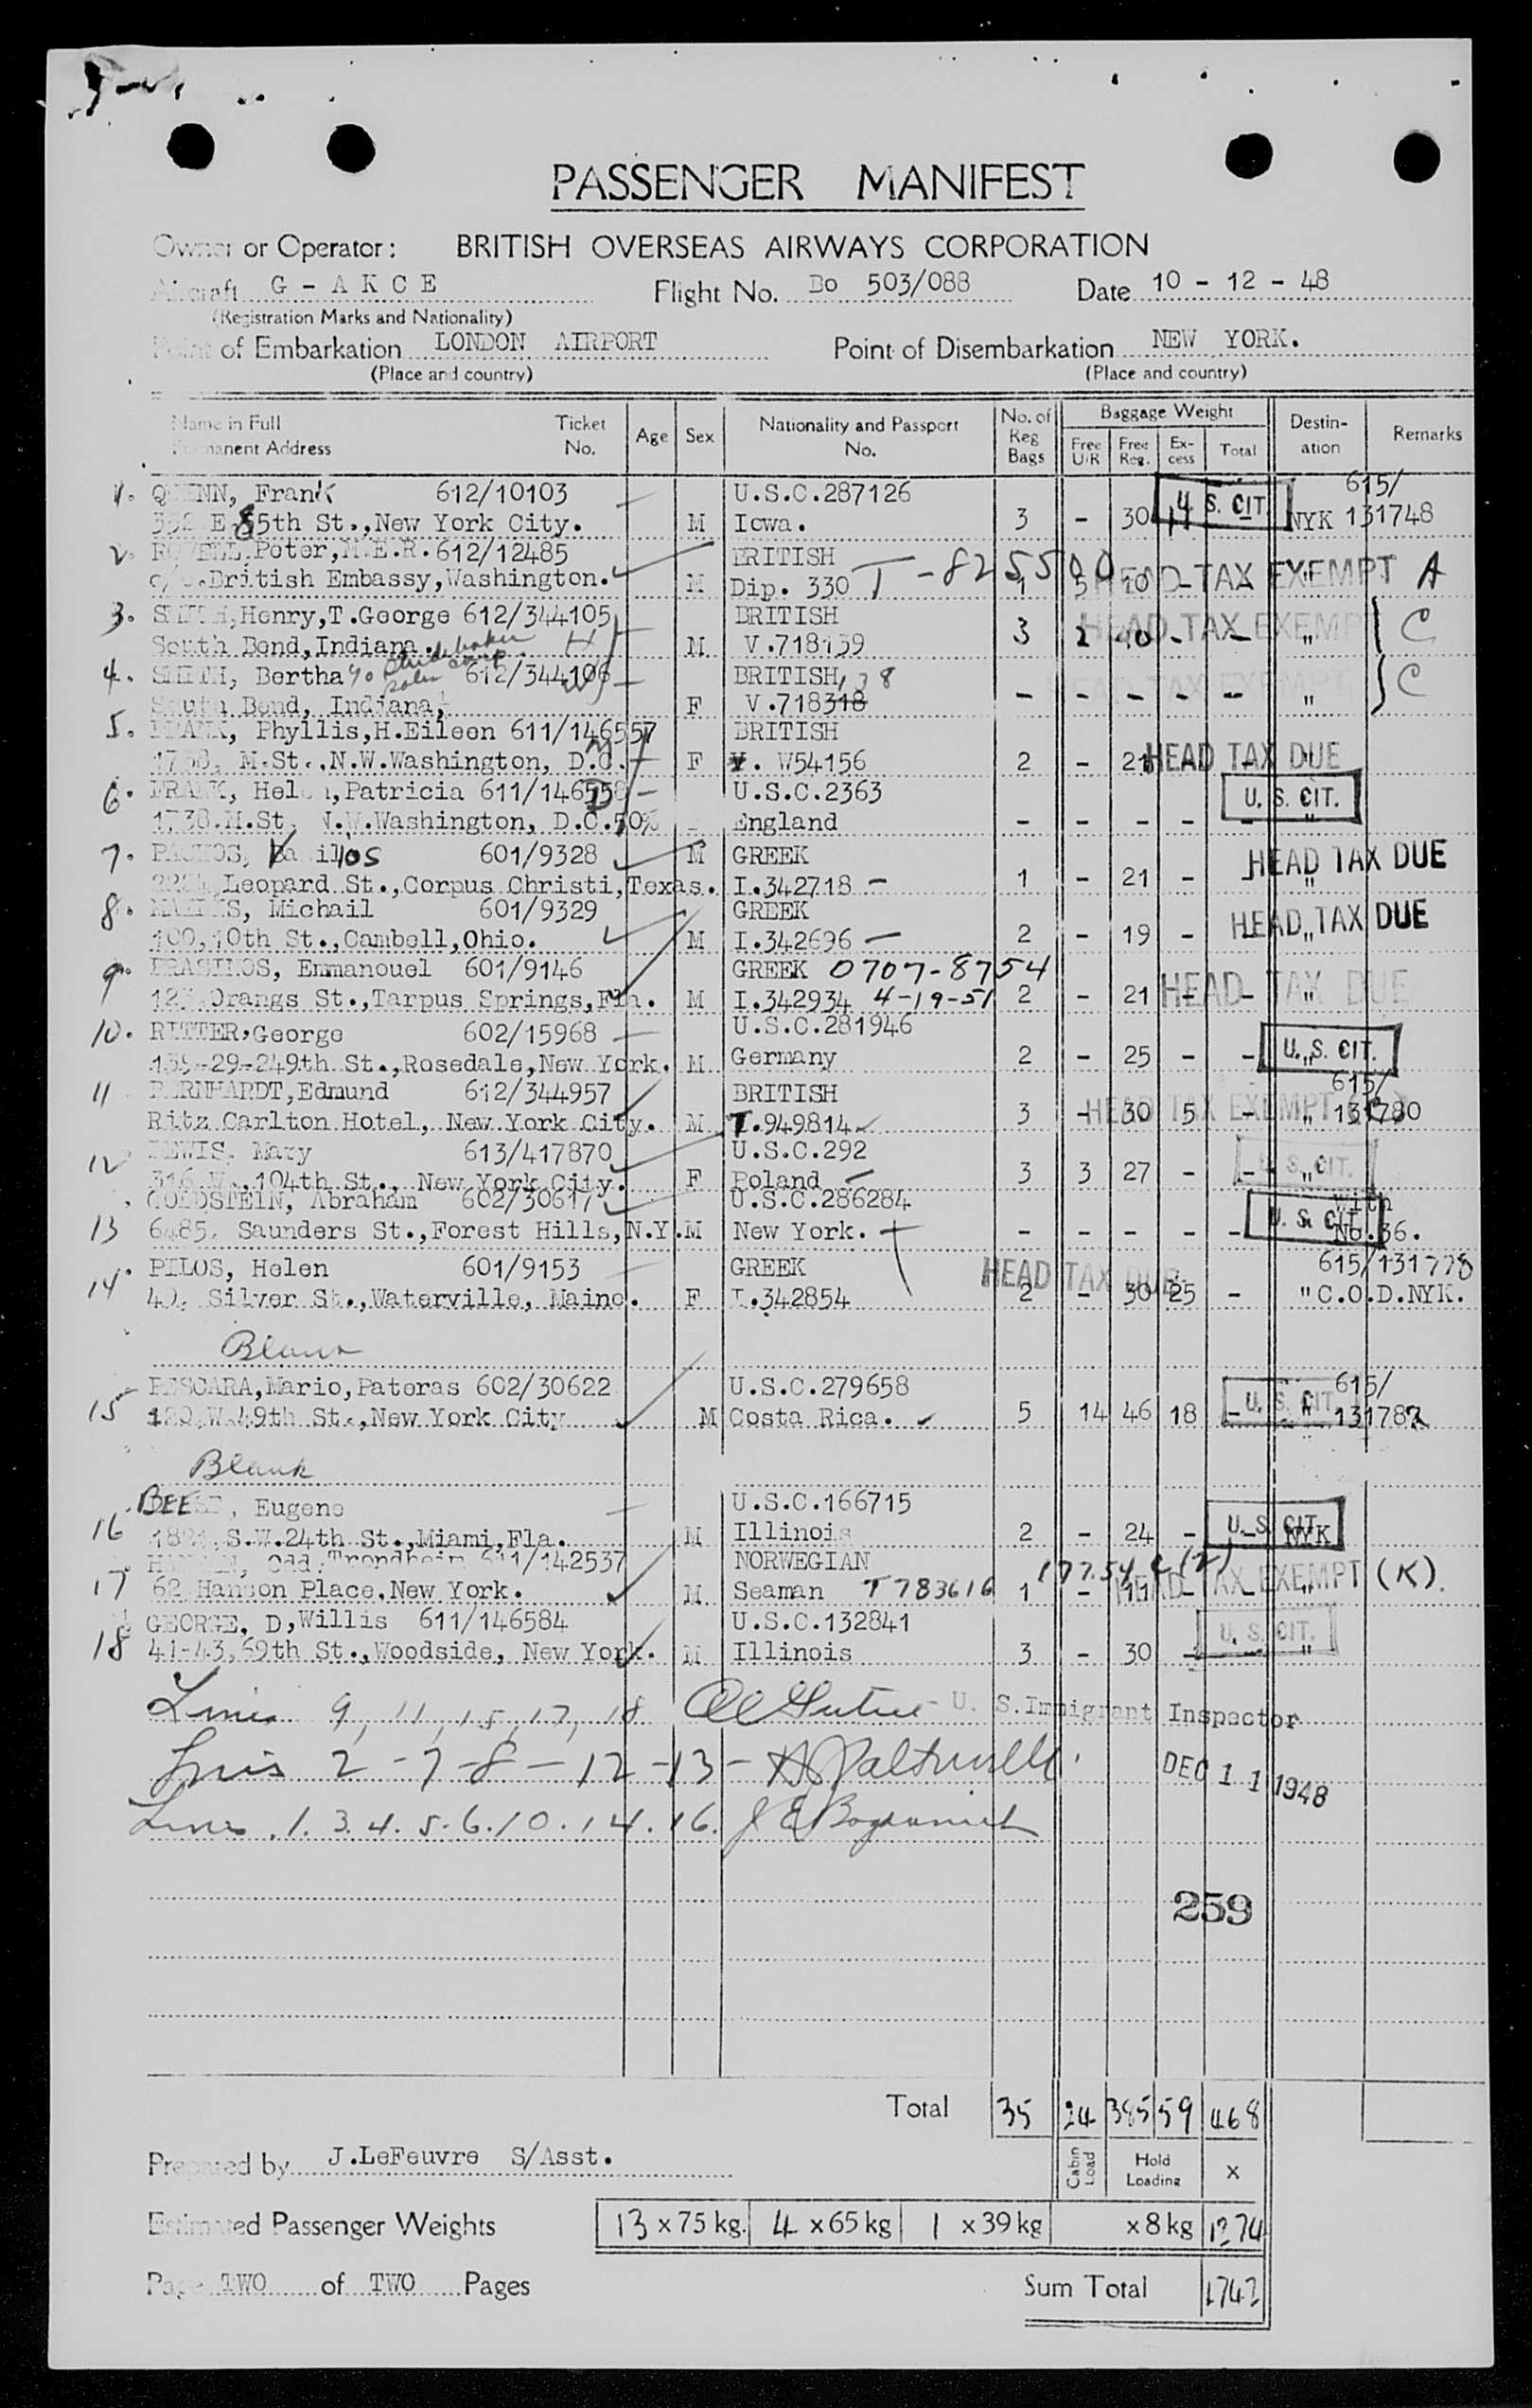 PASSENGER MANIFEST
Owner or Operator: BRITISH OVERSEAS AIRWAYS CORPORATION
Aircraft G - A K C E Flight No. Bo 503/088 Date 10 - 12 - 48
(Registration Marks and Nationality)
Point of Embarkation LONDON AIRPORT Point of Disembarkation NEW YORK.
(Place and country) (Place and country)
Name in Full Ticket Age Sex Nationality and Passport No. of Baggage Weight Destin- Remarks
Permanent Address No. No. Reg Bags Free U/R Free Reg. Ex- cess Total ation
1. QUINN, Frank 612/10103 U.S.C.287126 U.S. CIT. 615/
E 85th St.,New York City. M Iowa. 3 - 30 NYK 131748
2. Peter, M.E.R. 612/12485 BRITISH
British Embassy,Washington. M Dip. 330 T-825500 1 5 10 - - HEAD TAX EXEMPT " A
3. SMITH,Henry,T.George 612/344105 BRITISH HEAD TAX EXEMPT
South Bend,Indiana. M V.718139 3 2 40 - - " C
4. SMITH, Bertha c/o Studebaker Sales Corp. 612/344106 BRITISH, 138
South Bend, Indiana, F V.718318 - - - - - " C
5. FRANK, Phyllis,H.Eileen 611/146557 BRITISH
1738, M.St.,N.W.Washington, D.C. F V. W54156 2 - 21 HEAD TAX DUE
6. FRANK, Helen,Patricia 611/146558 U.S.C.2363 U.S. CIT.
1738.M.St. N.W.Washington, D.C.50% England - - - - - "
7. Vasilios 601/9328 M GREEK HEAD TAX DUE
Leopard St.,Corpus Christi,Texas. I.342718 - 1 - 21 - - "
8. Michail 601/9329 GREEK HEAD TAX DUE
100,10th St.,Cambell,Ohio. M I.342696 - 2 - 19 - - "
9. Emmanouel 601/9146 GREEK 0707-8754
Orangs St.,Tarpus Springs,Fla. M I.342934 4-19-51 2 - 21 - - HEAD TAX DUE "
10. RITTER,George 602/15968 U.S.C.281946 U.S. CIT.
139-29-249th St.,Rosedale,New York. M Germany 2 - 25 - - "
11 BERNHARDT,Edmund 612/344957 BRITISH 615/
Ritz Carlton Hotel, New York City. M I.949814 3 - 30 5 - HEAD TAX EXEMPT " 131780
12 LEWIS, Mary 613/417870 U.S.C.292
316.W.,104th St., New York City. F Poland 3 3 27 - - U.S. CIT. "
GOLDSTEIN, Abraham 602/30617 U.S.C.286284 U.S. CIT. With
13 6485, Saunders St.,Forest Hills,N.Y. M New York. - - - - - No.36.
14. PILOS, Helen 601/9153 GREEK HEAD TAX DUE 615/131778
40, Silver St.,Waterville, Maine. F I.342854 2 - 30 25 - " C.O.D.NYK.
Blank
15 PESCARA,Mario,Pateras 602/30622 U.S.C.279658 U.S. CIT. 615/
W.49th St.,New York City M Costa Rica. 5 14 46 18 - " 131782
Blank
16 Eugene U.S.C.166715 U.S. CIT.
S.W.24th St.,Miami,Fla. M Illinois 2 - 24 - - NYK
Odd, Trondheim 611/142537 NORWEGIAN
17 62 Hanson Place.New York. M Seaman T783616 1 - 11 - HEAD TAX EXEMPT " (K).
GEORGE, D,Willis 611/146584 U.S.C.132841 U.S. CIT.
18 41-43,69th St.,Woodside, New York. M Illinois 3 - 30 - - "
Lines 9, 11, 15, 17, 18 U. S.Immigrant Inspector
Lines 2 - 7 - 8 - 12 - 13 - DEC 11 1948
Lines 1. 3. 4. 5. 6. 10. 14. 16.
259
Total 35 24 385 59 468
Prepared by J.LeFeuvre S/Asst. Cabin Load Hold Loading X
Estimated Passenger Weights 13 x 75 kg. 4 x 65 kg 1 x 39 kg x 8 kg 1274
Page TWO of TWO Pages Sum Total 1742